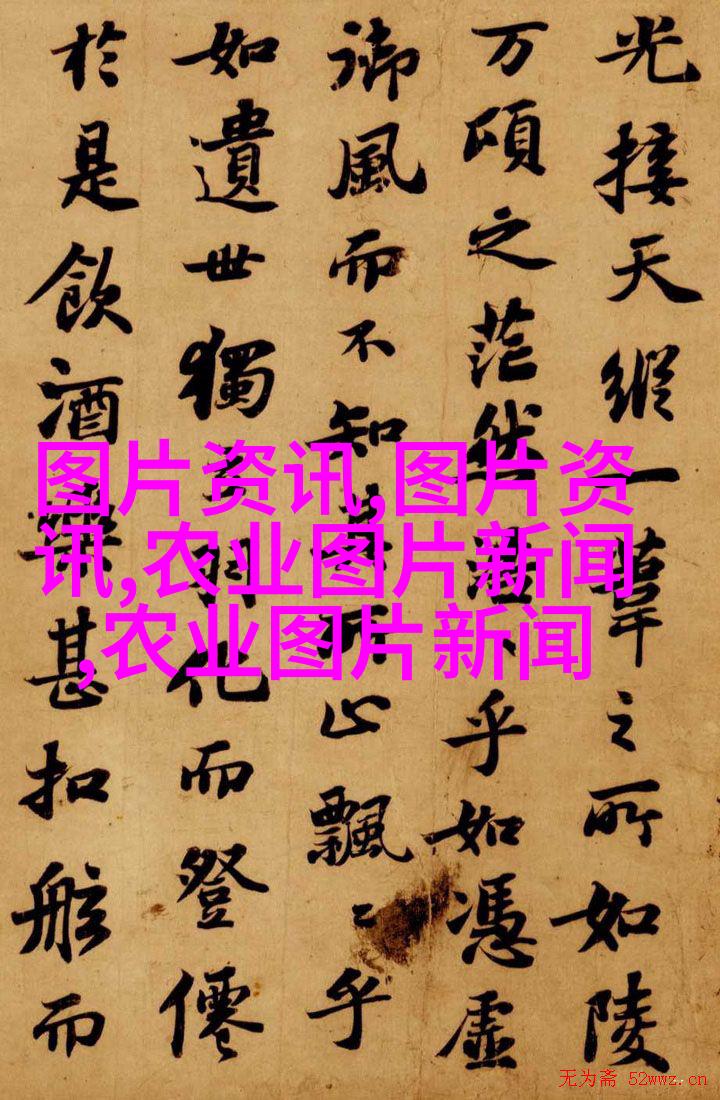 光接天縱一葦之所如陵
万頃之茫然浩〻乎如憑虛
御風而不知其所止飄〻乎
如遺世獨立羽化而登僊
於是飲酒樂甚扣舷而
图片资讯,图片资
讯,农业图片新闻
,农业图片新闻
无为斋 52wwz.cn